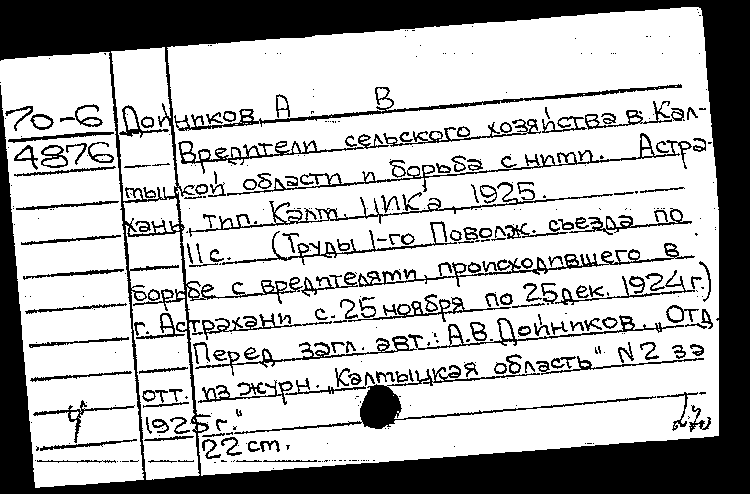 70-6 Дойников, А. В
4876 Вредители сельского хозяйства в Кал-
мыцкой области и борьба с ними. Астра-
хань, тип. Калм. ЦИК'а, 1925.
11 с. (Труды 1-го Поволж. съезда по
борьбе с вредителями, происходившего в
г. Астрахани с. 25 ноября по 25 дек. 1924 г.)
Перед загл. авт.: А.В. Дойников. „Отд.
отт. из журн. „Калмыцкая область" N 2 за
1925 г."
22 см.